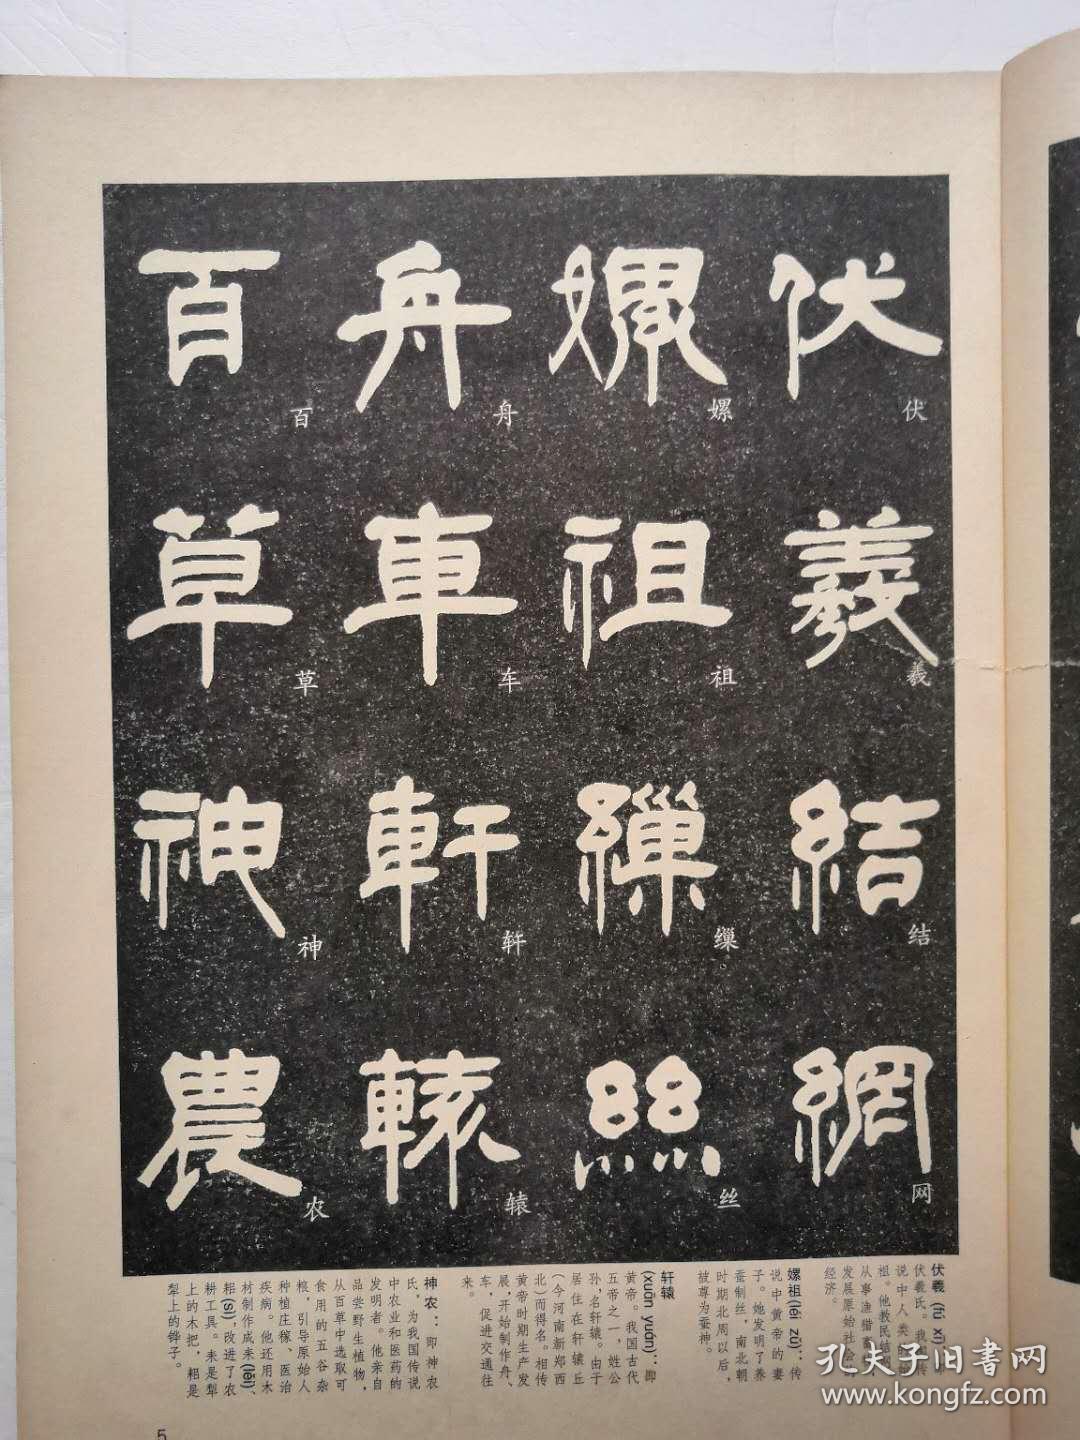 伏羲結網
伏羲结网
嫘祖繅絲
嫘祖缫丝
舟車軒轅
舟车轩辕
百草神農
百草神农
伏羲 (fú xī)
伏羲氏。我
说中人类的始
祖。他教民结网
从事渔猎畜牧
发展原始社会
经济。
嫘祖(léi zǔ)：传
说中黄帝的妻
子。她发明了养
蚕制丝，南北朝
时期北周以后，
被尊为蚕神。
轩辕
(xuān yuán)：即
黄帝。我国古代
五帝之一，姓公
孙，名轩辕。由于
居住在轩辕丘
（今河南新郑西
北）而得名。相传
黄帝时期生产发
展，开始制作舟、
车，促进交通往
来。
神农：即神农
氏，为我国传说
中农业和医药的
发明者。他亲自
品尝野生植物，
从百草中选取可
食用的五谷杂
粮，引导原始人
种植庄稼、医治
疾病。他还用木
材制作成耒(lěi)、
耜(sì)，改进了农
耕工具。耒是犁
上的木把，耜是
犁上的铧子。
5
孔夫子旧书网
www.kongfz.com